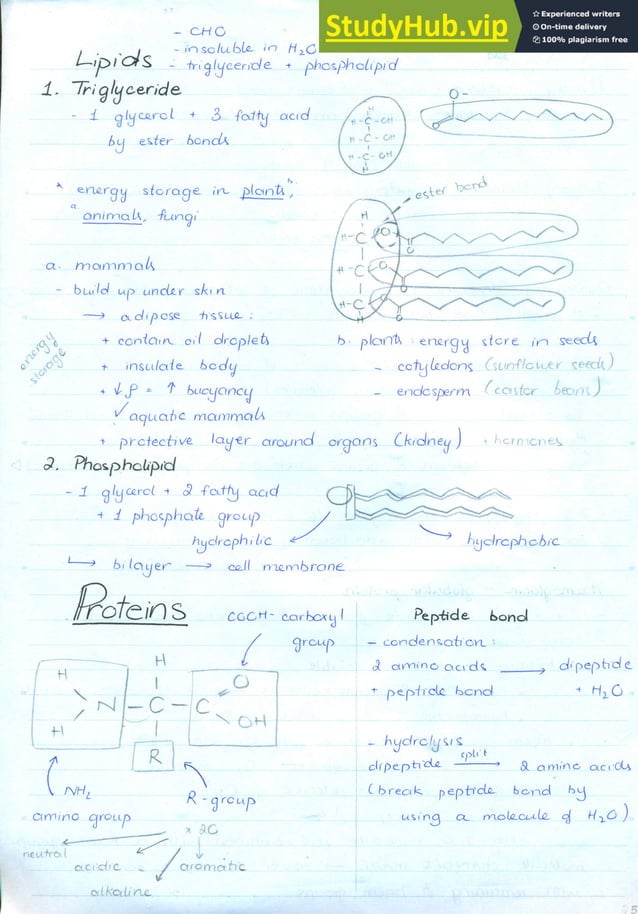 StudyHub.vip
Experienced writers
On-time delivery
100% plagiarism free
- CHO
- insoluble in H₂O
Lipids - triglyceride + phospholipid
1. Triglyceride
- 1 glycerol + 3 fatty acid
by ester bonds
H
H-C-OH
H-C-OH
H-C-OH
H
O-
O
* energy storage in plants,ᵇ
ᵃ animals, fungi
ester bond
H
H-C-O
O
H-C-O
O
H-C-O
O
H
a. mammals
- build up under skin
→ adipose tissue:
+ contain oil droplets
+ insulate body
+ ↓ρ = ↑ buoyancy
✓ aquatic mammals
+ protective layer around organs (kidney) + hormones
energy storage
b. plants: energy store in seeds
- cotyledons (sunflower seeds)
- endosperm (castor beans)
2. Phospholipid
- 1 glycerol + 2 fatty acid
+ 1 phosphate group
hydrophilic
hydrophobic
↳ bilayer → cell membrane
Proteins
COOH - carboxyl
group
H
H N - C - C O
H OH
R
NH₂
amino group
R-group
x 20
neutral
acidic
aromatic
alkaline
Peptide bond
- condensation:
2 amino acids → dipeptide
+ peptide bond + H₂O
- hydrolysis
dipeptide split → 2 amino acids
(break peptide bond by
using a molecule of H₂O).